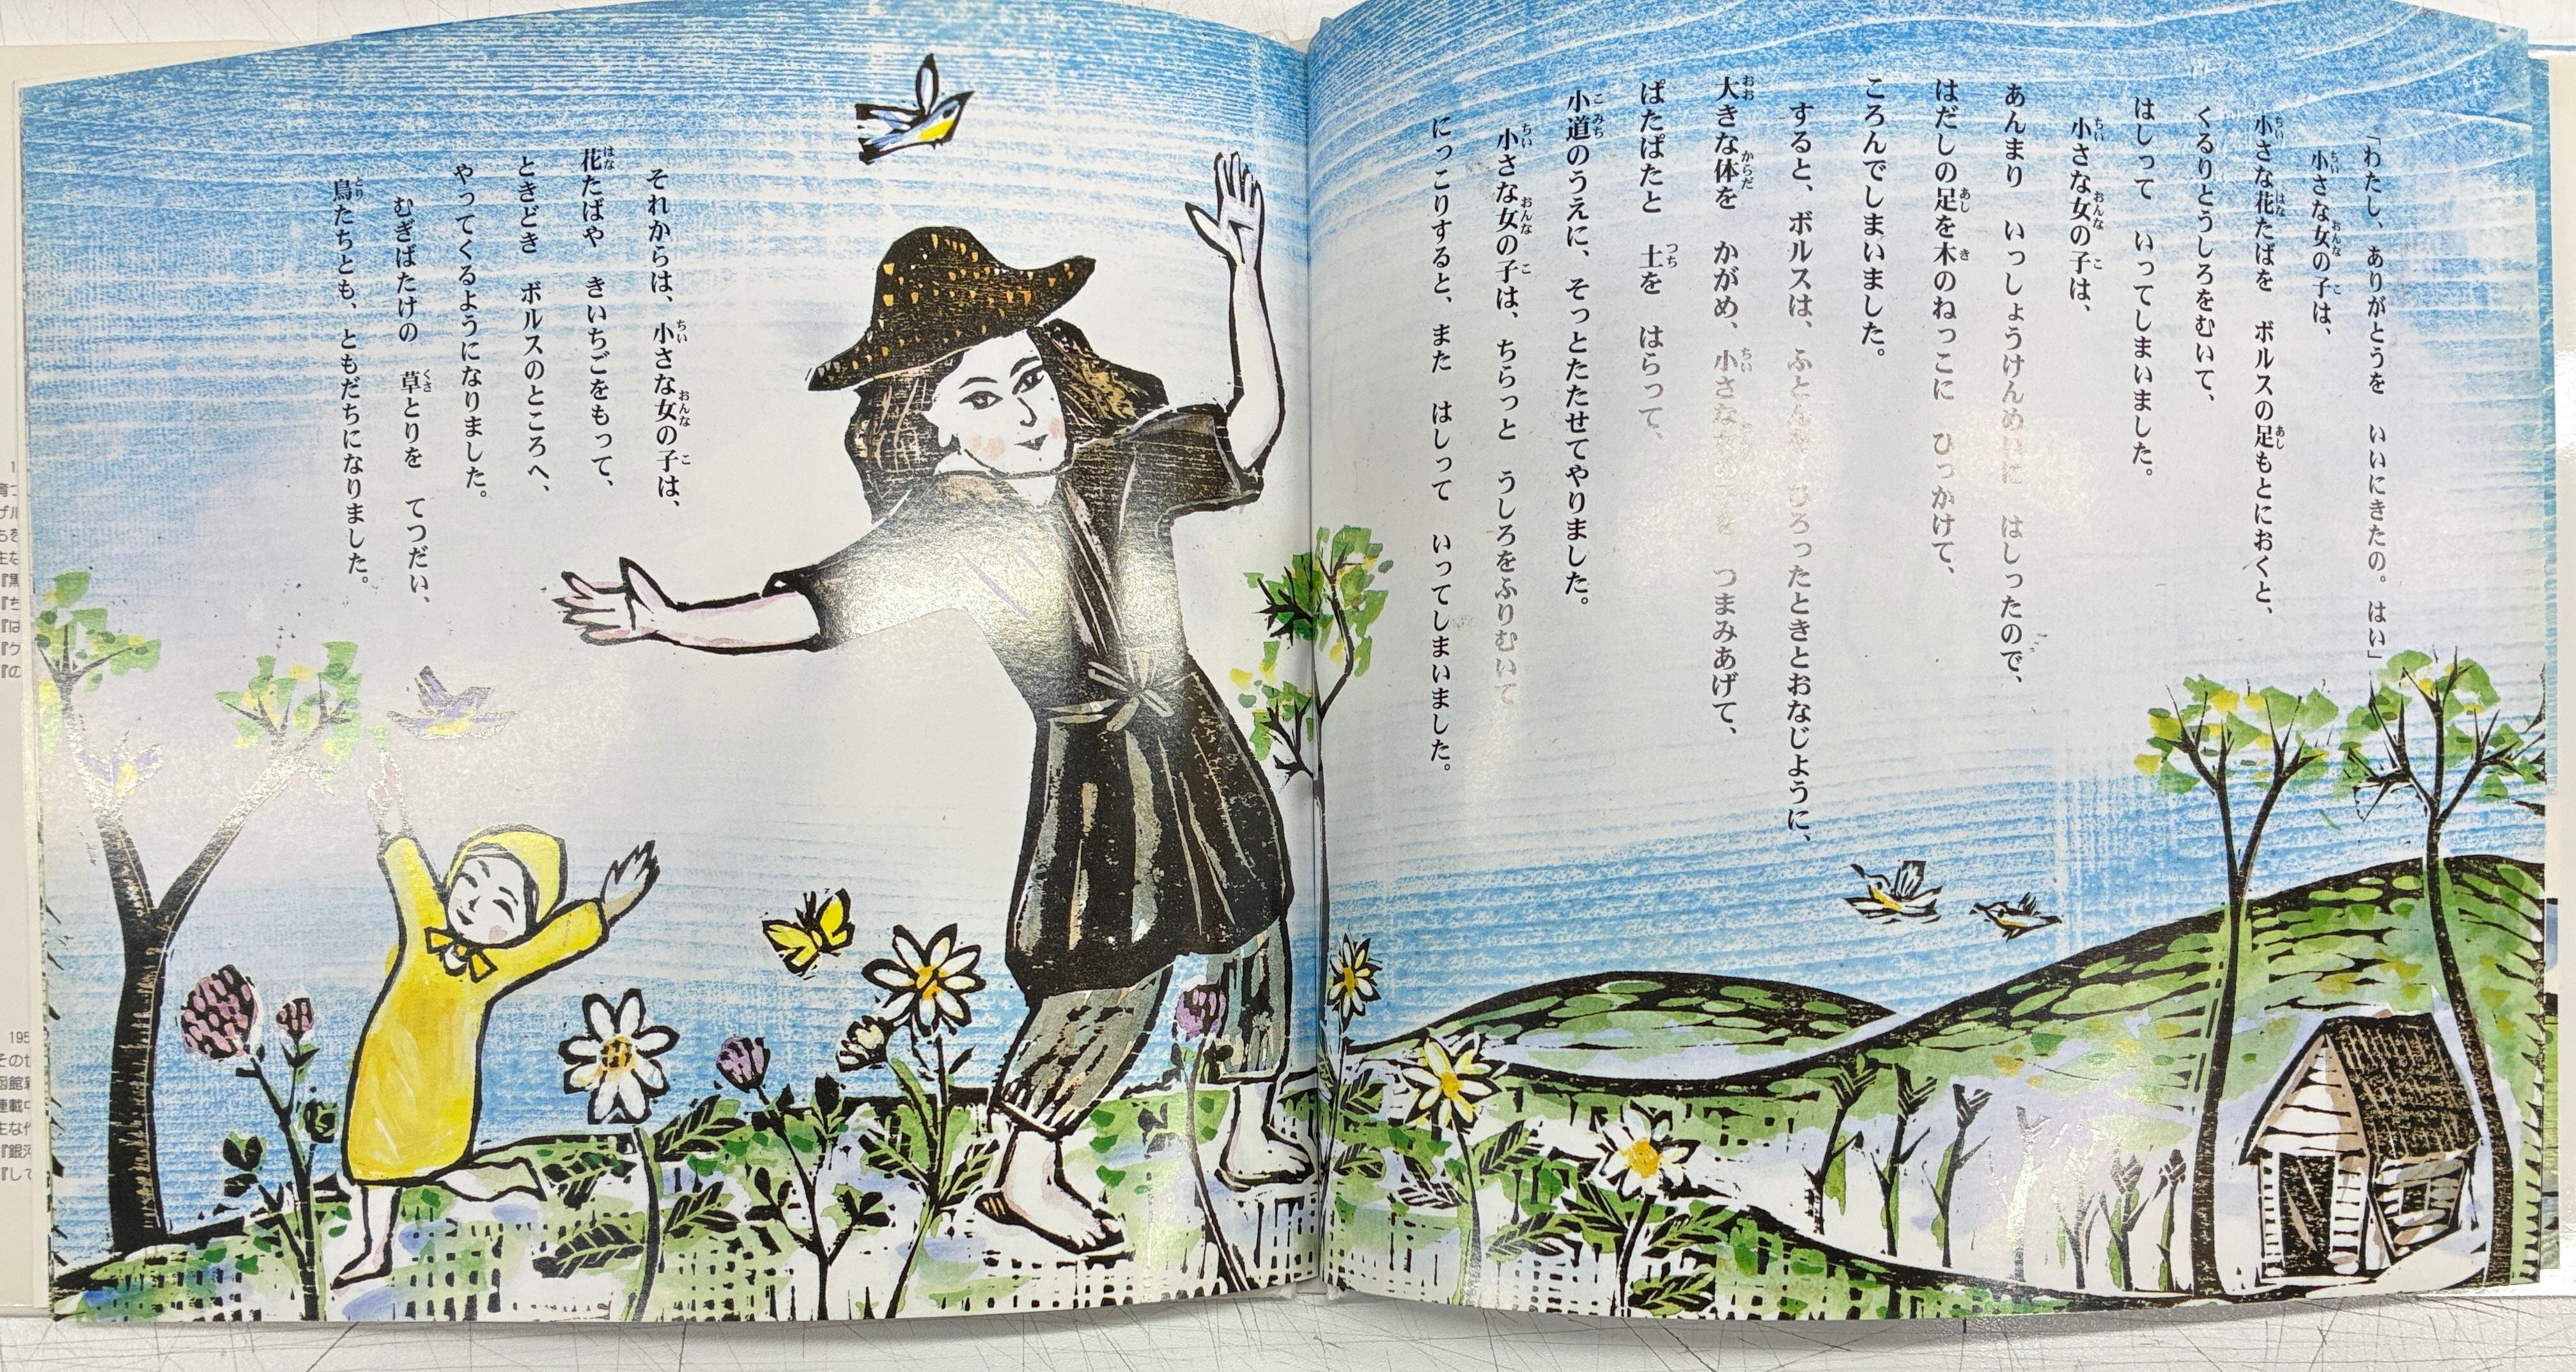 「わたし、ありがとうを　いいにきたの。はい」
小さな女の子は、
小さな花たばを　ボルスの足もとにおくと、
くるりとうしろをむいて、
はしって　いってしまいました。
小さな女の子は、
あんまり　いっしょうけんめいに　はしったので、
はだしの足を木のねっこに　ひっかけて、
ころんでしまいました。
すると、ボルスは、ふとんを　ひろったときとおなじように、
大きな体を　かがめ、小さな女の子を　つまみあげて、
ぱたぱたと　土を　はらって、
小道のうえに、そっとたたせてやりました。
小さな女の子は、ちらっと　うしろをふりむいて
にっこりすると、また　はしって　いってしまいました。
それからは、小さな女の子は、
花たばや　きいちごをもって、
ときどき　ボルスのところへ、
やってくるようになりました。
むぎばたけの　草とりを　てつだい、
鳥たちとも、ともだちになりました。